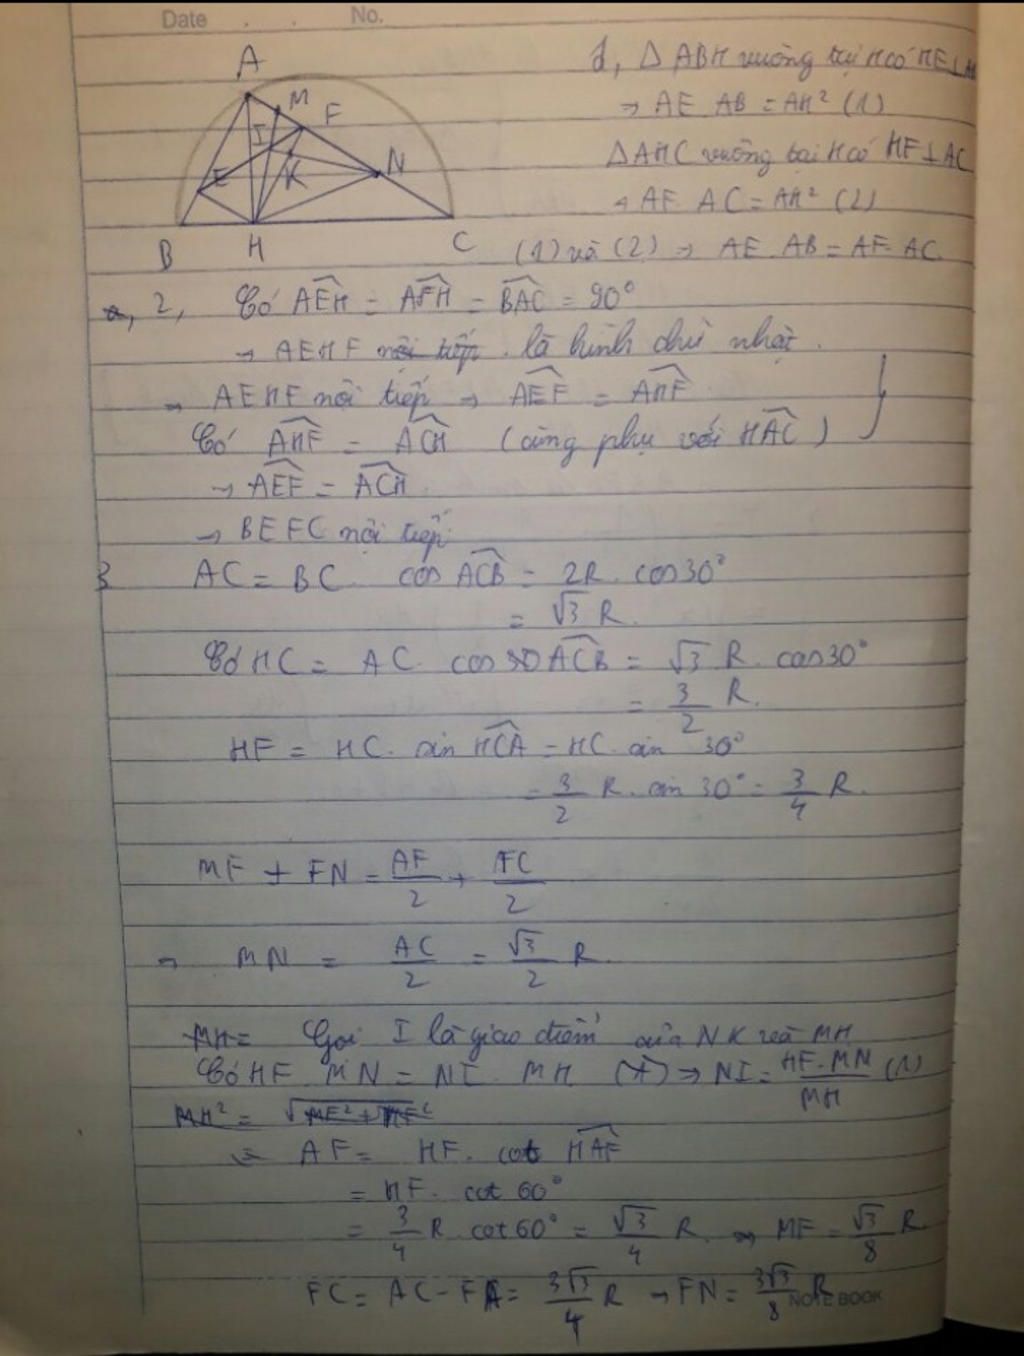 Date . . No.
A
M
F
I
E
K
N
B
H
C
1, Δ ABH vuông tại H có HE⊥A
→ AE AB = AH² (1)
ΔAHC vuông tại H có HF⊥AC
→ AF AC = AH² (2)
(1) và (2) → AE AB = AF AC.
2, Có AEH = AFH = BAC = 90°
→ AEHF nội tiếp . là hình chữ nhật.
→ AEHF nội tiếp → AEF = AHF
Có AHF = ACH (cùng phụ với HAC)
→ AEF = ACH.
→ BEFC nội tiếp
3 AC = BC cos ACB = 2R . cos30°
= √3 R.
Có HC = AC . cos 30 ACB = √3 R. cos30°
= 3/2 R.
HF = HC. sin HCA = HC. sin 30°
= 3/2 R. sin 30° = 3/4 R.
MF + FN = AF/2 + FC/2
→ MN = AC/2 = √3/2 R
MH = Gọi I là giao điểm của NK và MH
Có HF MN = NI . MH (*) → NI = HF.MN/MH (1)
MH² = √MF² + HF²
AF = HF. cot HAF
= HF. cot 60°
= 3/4 R cot 60° = √3/4 R → MF = √3/8 R
FC = AC - FA = 3√3/4 R → FN = 3√3/8 R
NOTE BOOK